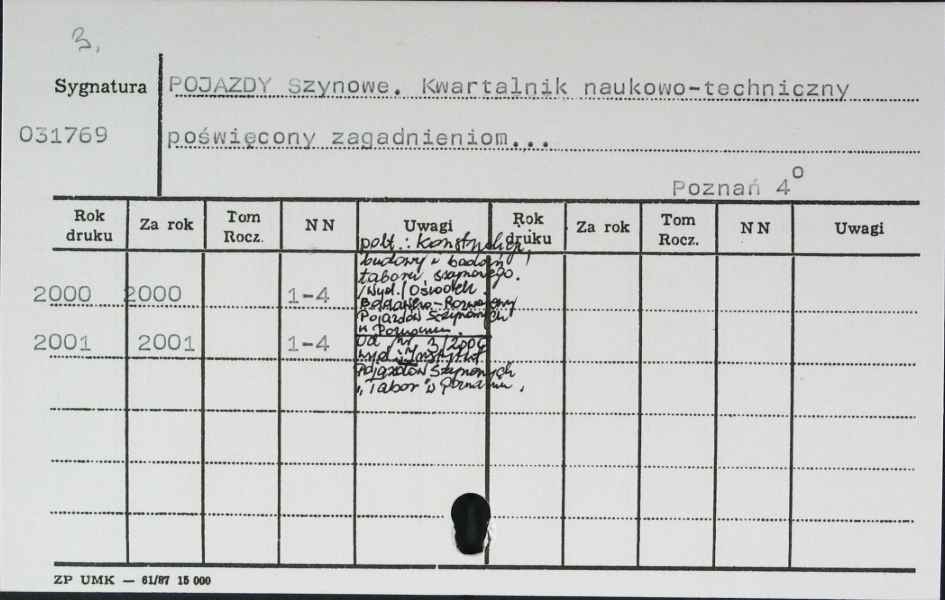 3.
Sygnatura POJAZDY Szynowe. Kwartalnik naukowo-techniczny
031769 poświęcony zagadnieniom...
Poznań 4⁰
Rok druku Za rok Tom Rocz. NN Uwagi Rok druku Za rok Tom Rocz. NN Uwagi
budowy i badań
taboru szynowego.
/Wyd./Ośrodek
Badawczo-Rozwojowy
Pojazdów Szynowych
w Poznaniu.
2000 2000 1-4
2001 2001 1-4
Od nr 3/2001
wyd.: Instytut
Pojazdów Szynowych
"Tabor" w Poznaniu.
ZP UMK — 61/87 15 000